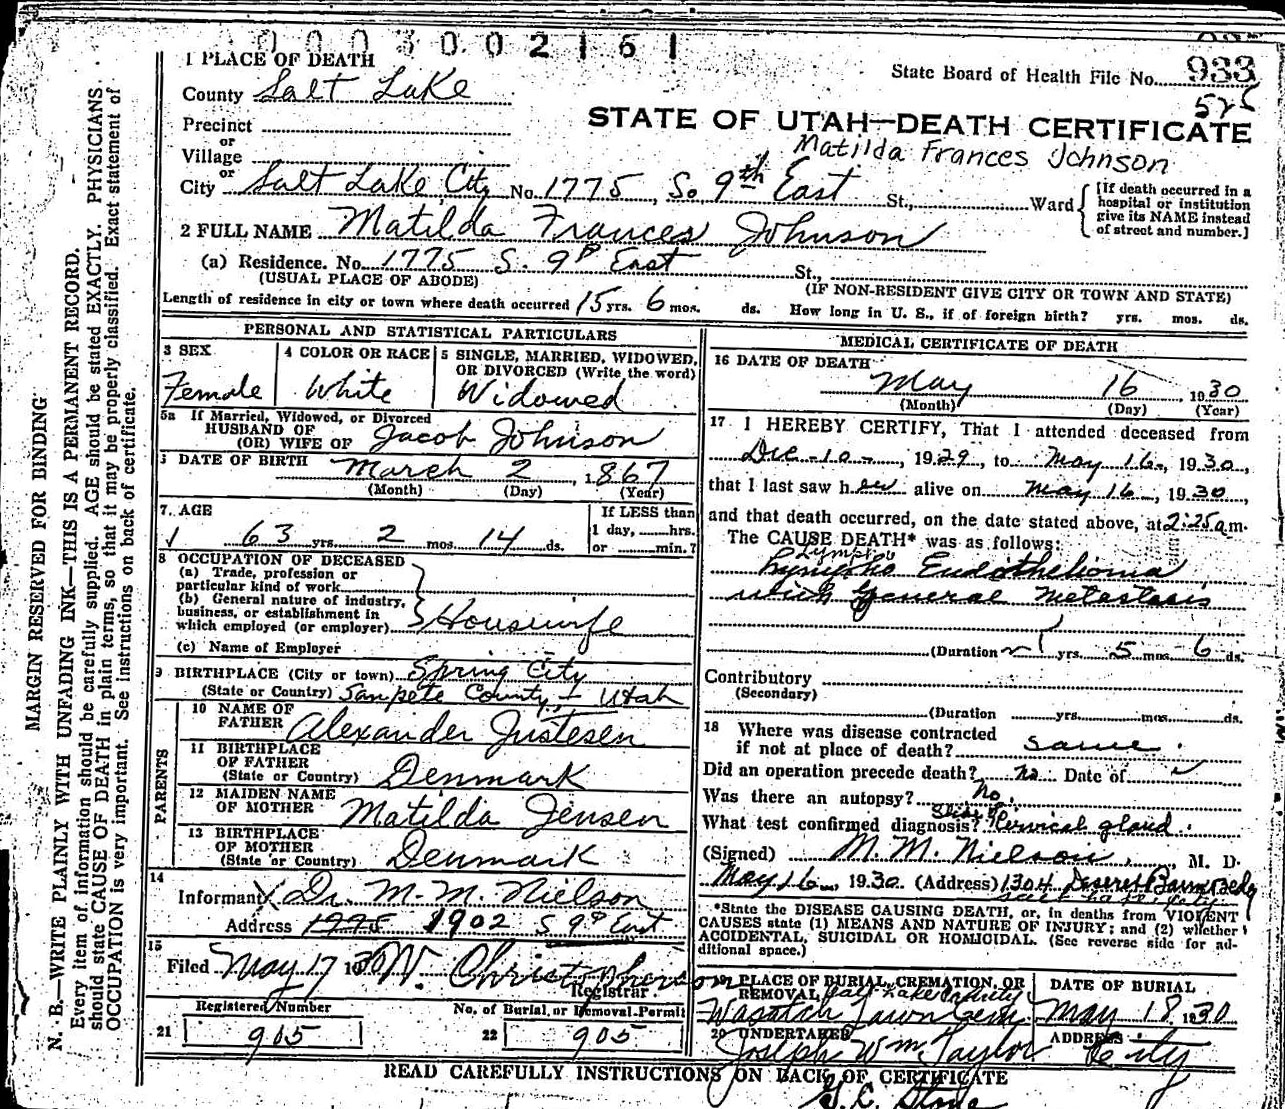 0003002161
1 PLACE OF DEATH
State Board of Health File No. 933
525
County Salt Lake
STATE OF UTAH—DEATH CERTIFICATE
Precinct
or
Matilda Frances Johnson
Village
or
City Salt Lake City No. 1775 So 9th East St., Ward
[If death occurred in a hospital or institution give its NAME instead of street and number.]
2 FULL NAME Matilda Frances Johnson
(a) Residence. No. 1775 S. 9th East St.,
(USUAL PLACE OF ABODE) (IF NON-RESIDENT GIVE CITY OR TOWN AND STATE)
Length of residence in city or town where death occurred 15 yrs. 6 mos. ds. How long in U. S., if of foreign birth? yrs. mos. ds.
PERSONAL AND STATISTICAL PARTICULARS
3 SEX
Female
4 COLOR OR RACE
White
5 SINGLE, MARRIED, WIDOWED,
OR DIVORCED (Write the word)
Widowed
5a If Married, Widowed, or Divorced
HUSBAND OF
(OR) WIFE OF Jacob Johnson
DATE OF BIRTH March 2, 1867
(Month) (Day) (Year)
7. AGE
63 yrs. 2 mos. 14 ds.
If LESS than
1 day, hrs.
or min.?
8 OCCUPATION OF DECEASED
(a) Trade, profession or
particular kind of work
(b) General nature of industry,
business, or establishment in
which employed (or employer) Housewife
(c) Name of Employer
9 BIRTHPLACE (City or town) Spring City
(State or Country) Sanpete County, Utah
PARENTS
10 NAME OF
FATHER Alexander Justesen
11 BIRTHPLACE
OF FATHER
(State or Country) Denmark
12 MAIDEN NAME
OF MOTHER Matilda Jensen
13 BIRTHPLACE
OF MOTHER
(State or Country) Denmark
14
Informant X Dr. M. M. Nielson
Address 1775 1902 S 9th East
15
Filed May 17 1930 W. Christopherson
Registrar.
Registered Number
21 905
No. of Burial or Removal Permit
22 905
MEDICAL CERTIFICATE OF DEATH
16 DATE OF DEATH
May 16, 1930
(Month) (Day) (Year)
17 I HEREBY CERTIFY, That I attended deceased from
Dec-10-, 1929, to May 16-, 1930,
that I last saw her alive on May 16-, 1930,
and that death occurred, on the date stated above, at 2:25 a m.
The CAUSE DEATH* was as follows:
Lympho
Lympho Endothelioma
with general metastasis
(Duration 1 yrs. 5 mos 6 ds.
Contributory
(Secondary)
(Duration yrs. mos. ds.
18 Where was disease contracted
if not at place of death? same.
Did an operation precede death? no Date of
Was there an autopsy? No.
What test confirmed diagnosis? Slide of Cervical gland.
(Signed) M. M. Nielson, M. D.
May 16, 1930. (Address) 1304 Deseret Bank Bldg
Salt Lake City
*State the DISEASE CAUSING DEATH, or, in deaths from VIOLENT
CAUSES state (1) MEANS AND NATURE OF INJURY; and (2) whether
ACCIDENTAL, SUICIDAL OR HOMICIDAL. (See reverse side for ad-
ditional space.)
19 PLACE OF BURIAL, CREMATION, OR
REMOVAL Salt Lake County
Wasatch Lawn Cem.
DATE OF BURIAL
May 18, 1930
20 UNDERTAKER
Joseph Wm. Taylor
ADDRESS
City
READ CAREFULLY INSTRUCTIONS ON BACK OF CERTIFICATE
MARGIN RESERVED FOR BINDING
N. B.—WRITE PLAINLY WITH UNFADING INK—THIS IS A PERMANENT RECORD.
Every item of information should be carefully supplied. AGE should be stated EXACTLY. PHYSICIANS
should state CAUSE OF DEATH in plain terms, so that it may be properly classified. Exact statement of
OCCUPATION is very important. See instructions on back of certificate.